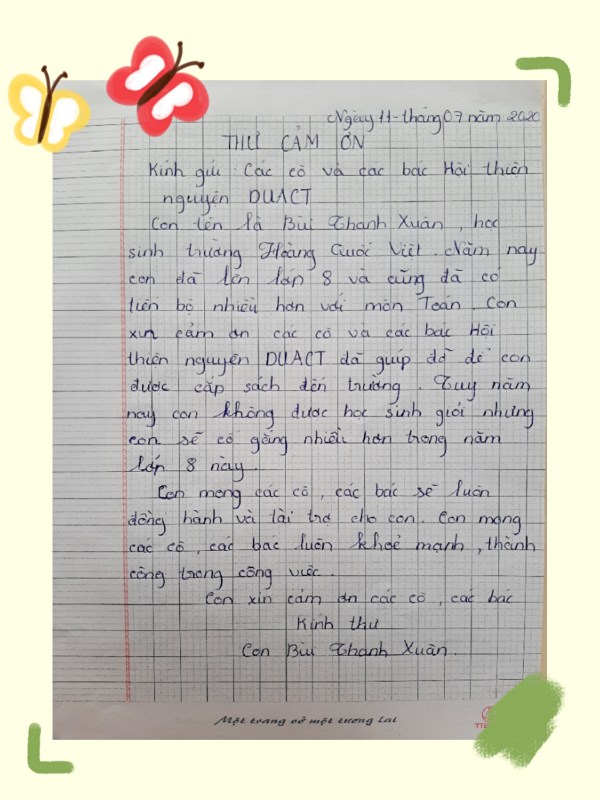 Ngày 11-tháng 07 năm 2020
THƯ CẢM ƠN
Kính gửi: Các cô và các bác Hội thiện
nguyện DUACT
Con tên là Bùi Thanh Xuân, học
sinh trường Hoàng Quốc Việt. Năm nay
con đã lên lớp 8 và cũng đã có
tiến bộ nhiều hơn với môn Toán. Con
xin cảm ơn các cô và các bác Hội
thiện nguyện DUACT đã giúp đỡ để con
được cắp sách đến trường. Tuy năm
nay con không được học sinh giỏi nhưng
con sẽ cố gắng nhiều hơn trong năm
lớp 8 này.
Con mong các cô, các bác sẽ luôn
đồng hành và tài trợ cho con. Con mong
các cô, các bác luôn khoẻ mạnh, thành
công trong công việc.
Con xin cảm ơn các cô, các bác
Kính thư
Con Bùi Thanh Xuân.
Một trang vở một tương lai